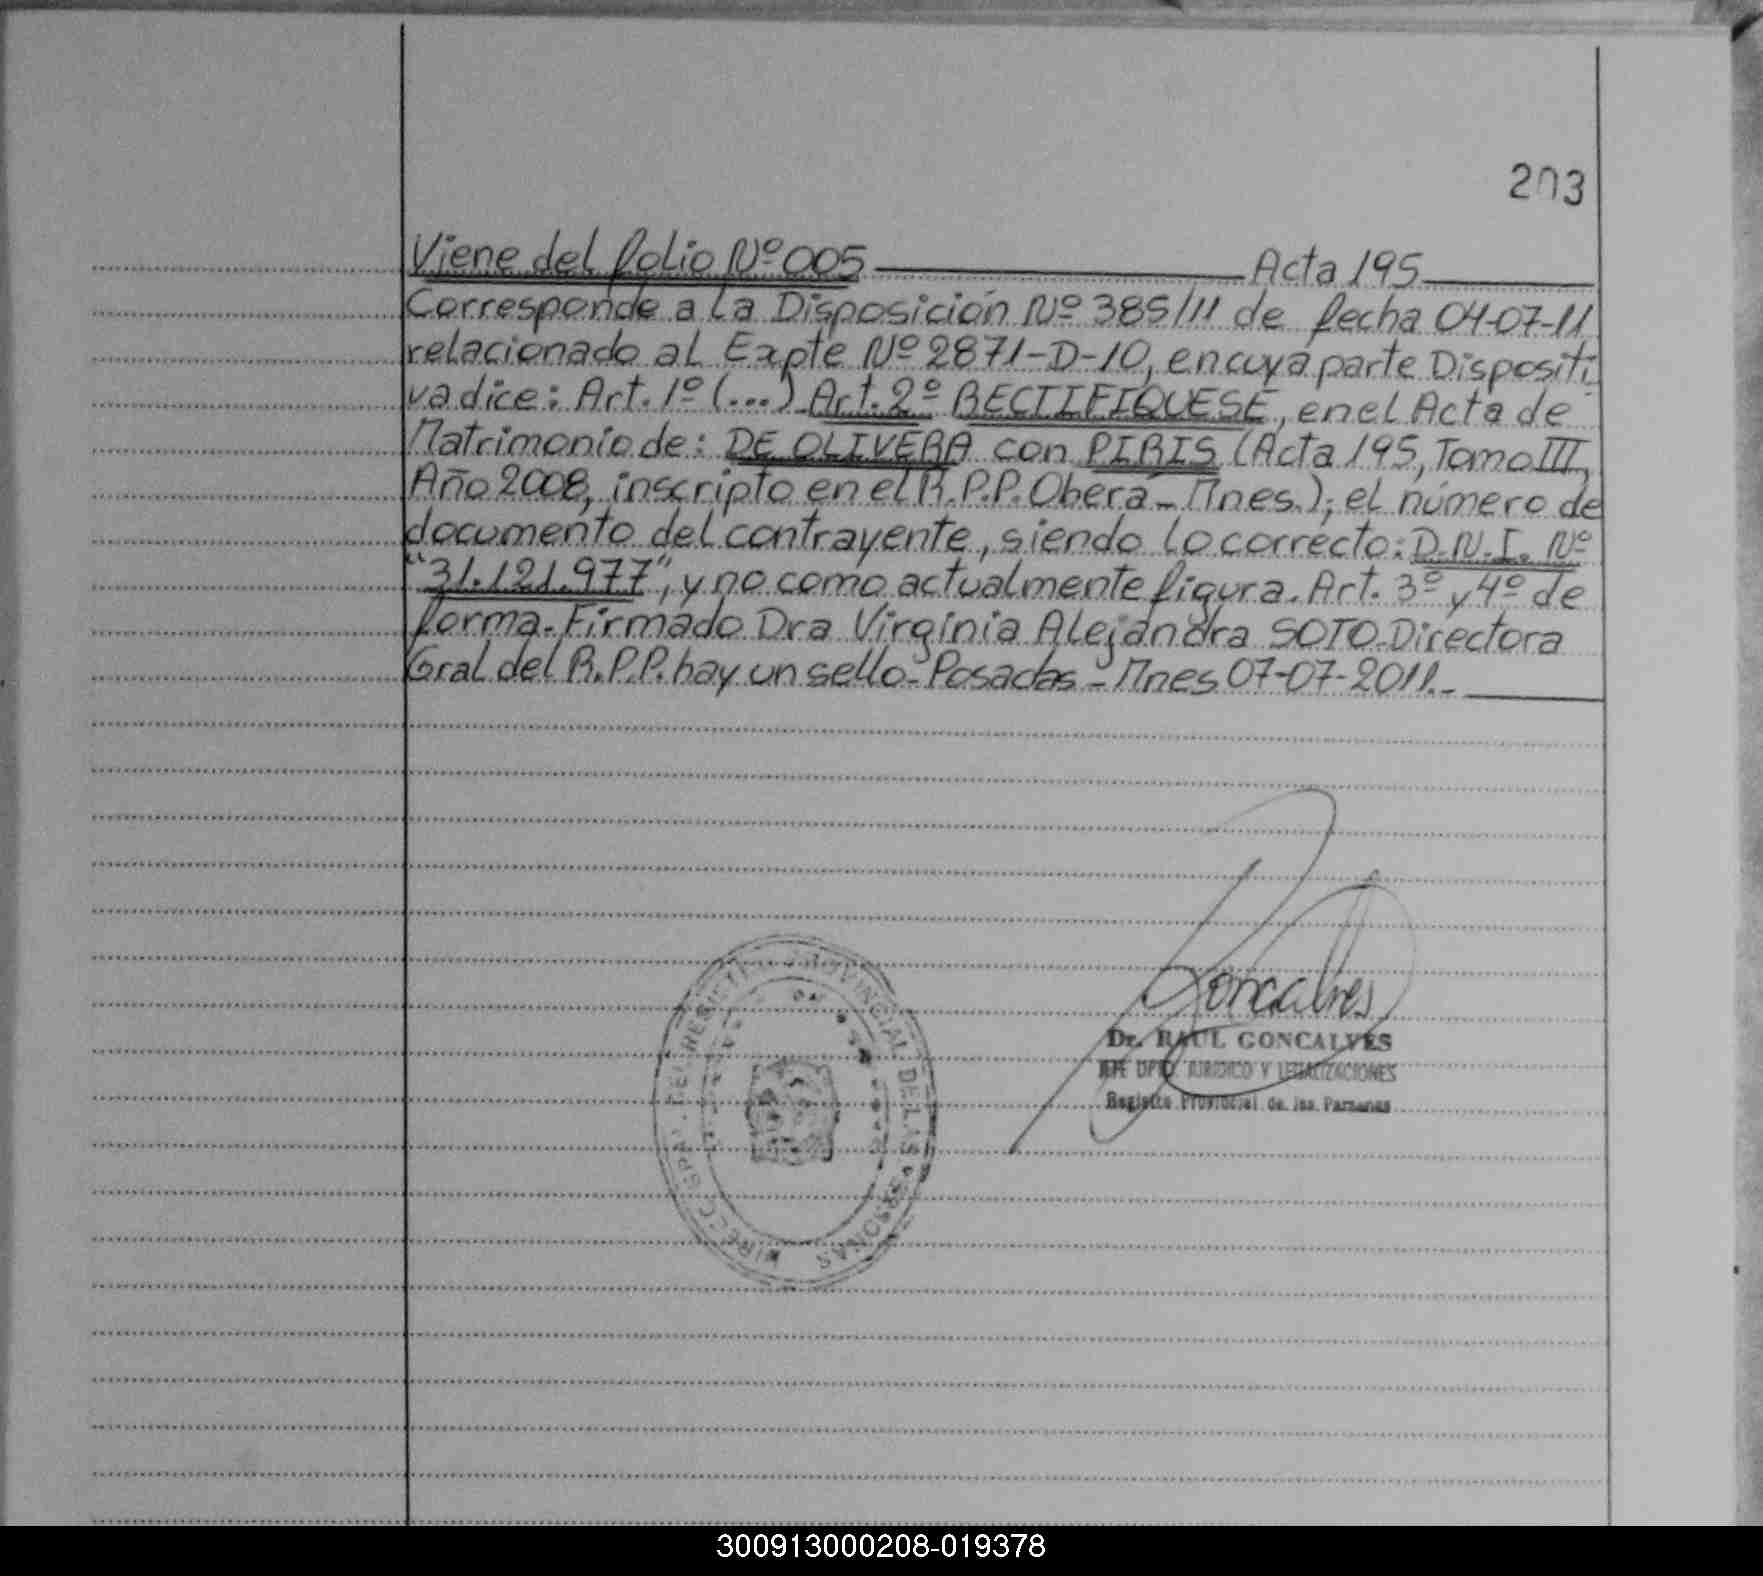 203
Viene del folio Nº 005 Acta 195
Corresponde a la Disposición Nº 385/11 de fecha 04-07-11
relacionado al Expte Nº 2871-D-10, en cuya parte Dispositi
va dice: Art. 1º (...) Art. 2º RECTIFIQUESE, en el Acta de
Matrimonio de: DE OLIVERA con PIRIS (Acta 195, Tomo III,
Año 2008, inscripto en el R.P.P. Oberá - Mnes.); el número de
documento del contrayente, siendo lo correcto: D.N.I. Nº
"31.121.977", y no como actualmente figura. Art. 3º y 4º de
forma. Firmado Dra Virginia Alejandra SOTO-Directora
Gral del R.P.P. hay un sello-Posadas-Mnes 07-07-2011.-
Goncalves
Dr. RAUL GONCALVES
JEFE DPTO. JURIDICO Y LEGALIZACIONES
Registro Provincial de las Personas
DIRECC. GRAL. DEL REGISTRO PROVINCIAL DE LAS PERSONAS
300913000208-019378